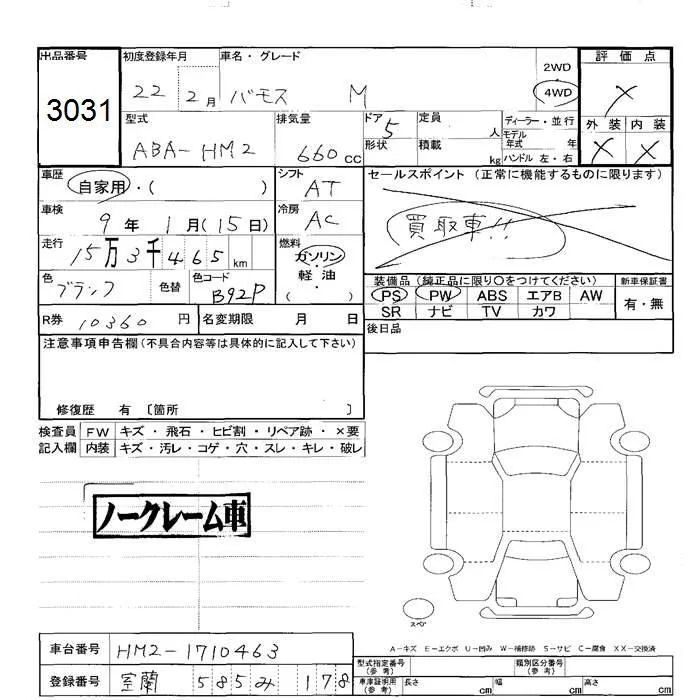 出品番号 初度登録年月 車名・グレード 2WD 評価点
3031 22 2月 バモス M 4WD ×
型式 排気量 ドア 定員 人 ディーラー・並行 外装 内装
ABA-HM2 660cc 5 形状 積載 kg モデル年式 年 ハンドル 左・右 × ×
車歴 自家用・( ) シフト AT セールスポイント (正常に機能するものに限ります)
車検 9年 1月(15日) 冷房 AC 買取車!!
走行 15万3千465km 燃料 ガソリン・軽油 ( )
色 ブラック 色替 色コード B92P 装備品 (純正品に限り○をつけてください) 新車保証書
PS PW ABS エアB AW 有・無
SR ナビ TV カワ
R券 10360円 名変期限 月 日 後日品
注意事項申告欄(不具合内容等は具体的に記入して下さい)
修復歴 有 〔箇所 〕
検査員 FW キズ・飛石・ヒビ割・リペア跡・×要
記入欄 内装 キズ・汚レ・コゲ・穴・スレ・キレ・破レ
ノークレーム車
スペア
A-キズ E-エクボ U-凹み W-補修跡 S-サビ C-腐食 XX-交換済
車台番号 HM2-1710463 型式指定番号(参考) 類別区分番号(参考)
登録番号 室蘭 585み 178 車庫証明用(参考) 長さ cm 幅 cm 高さ cm